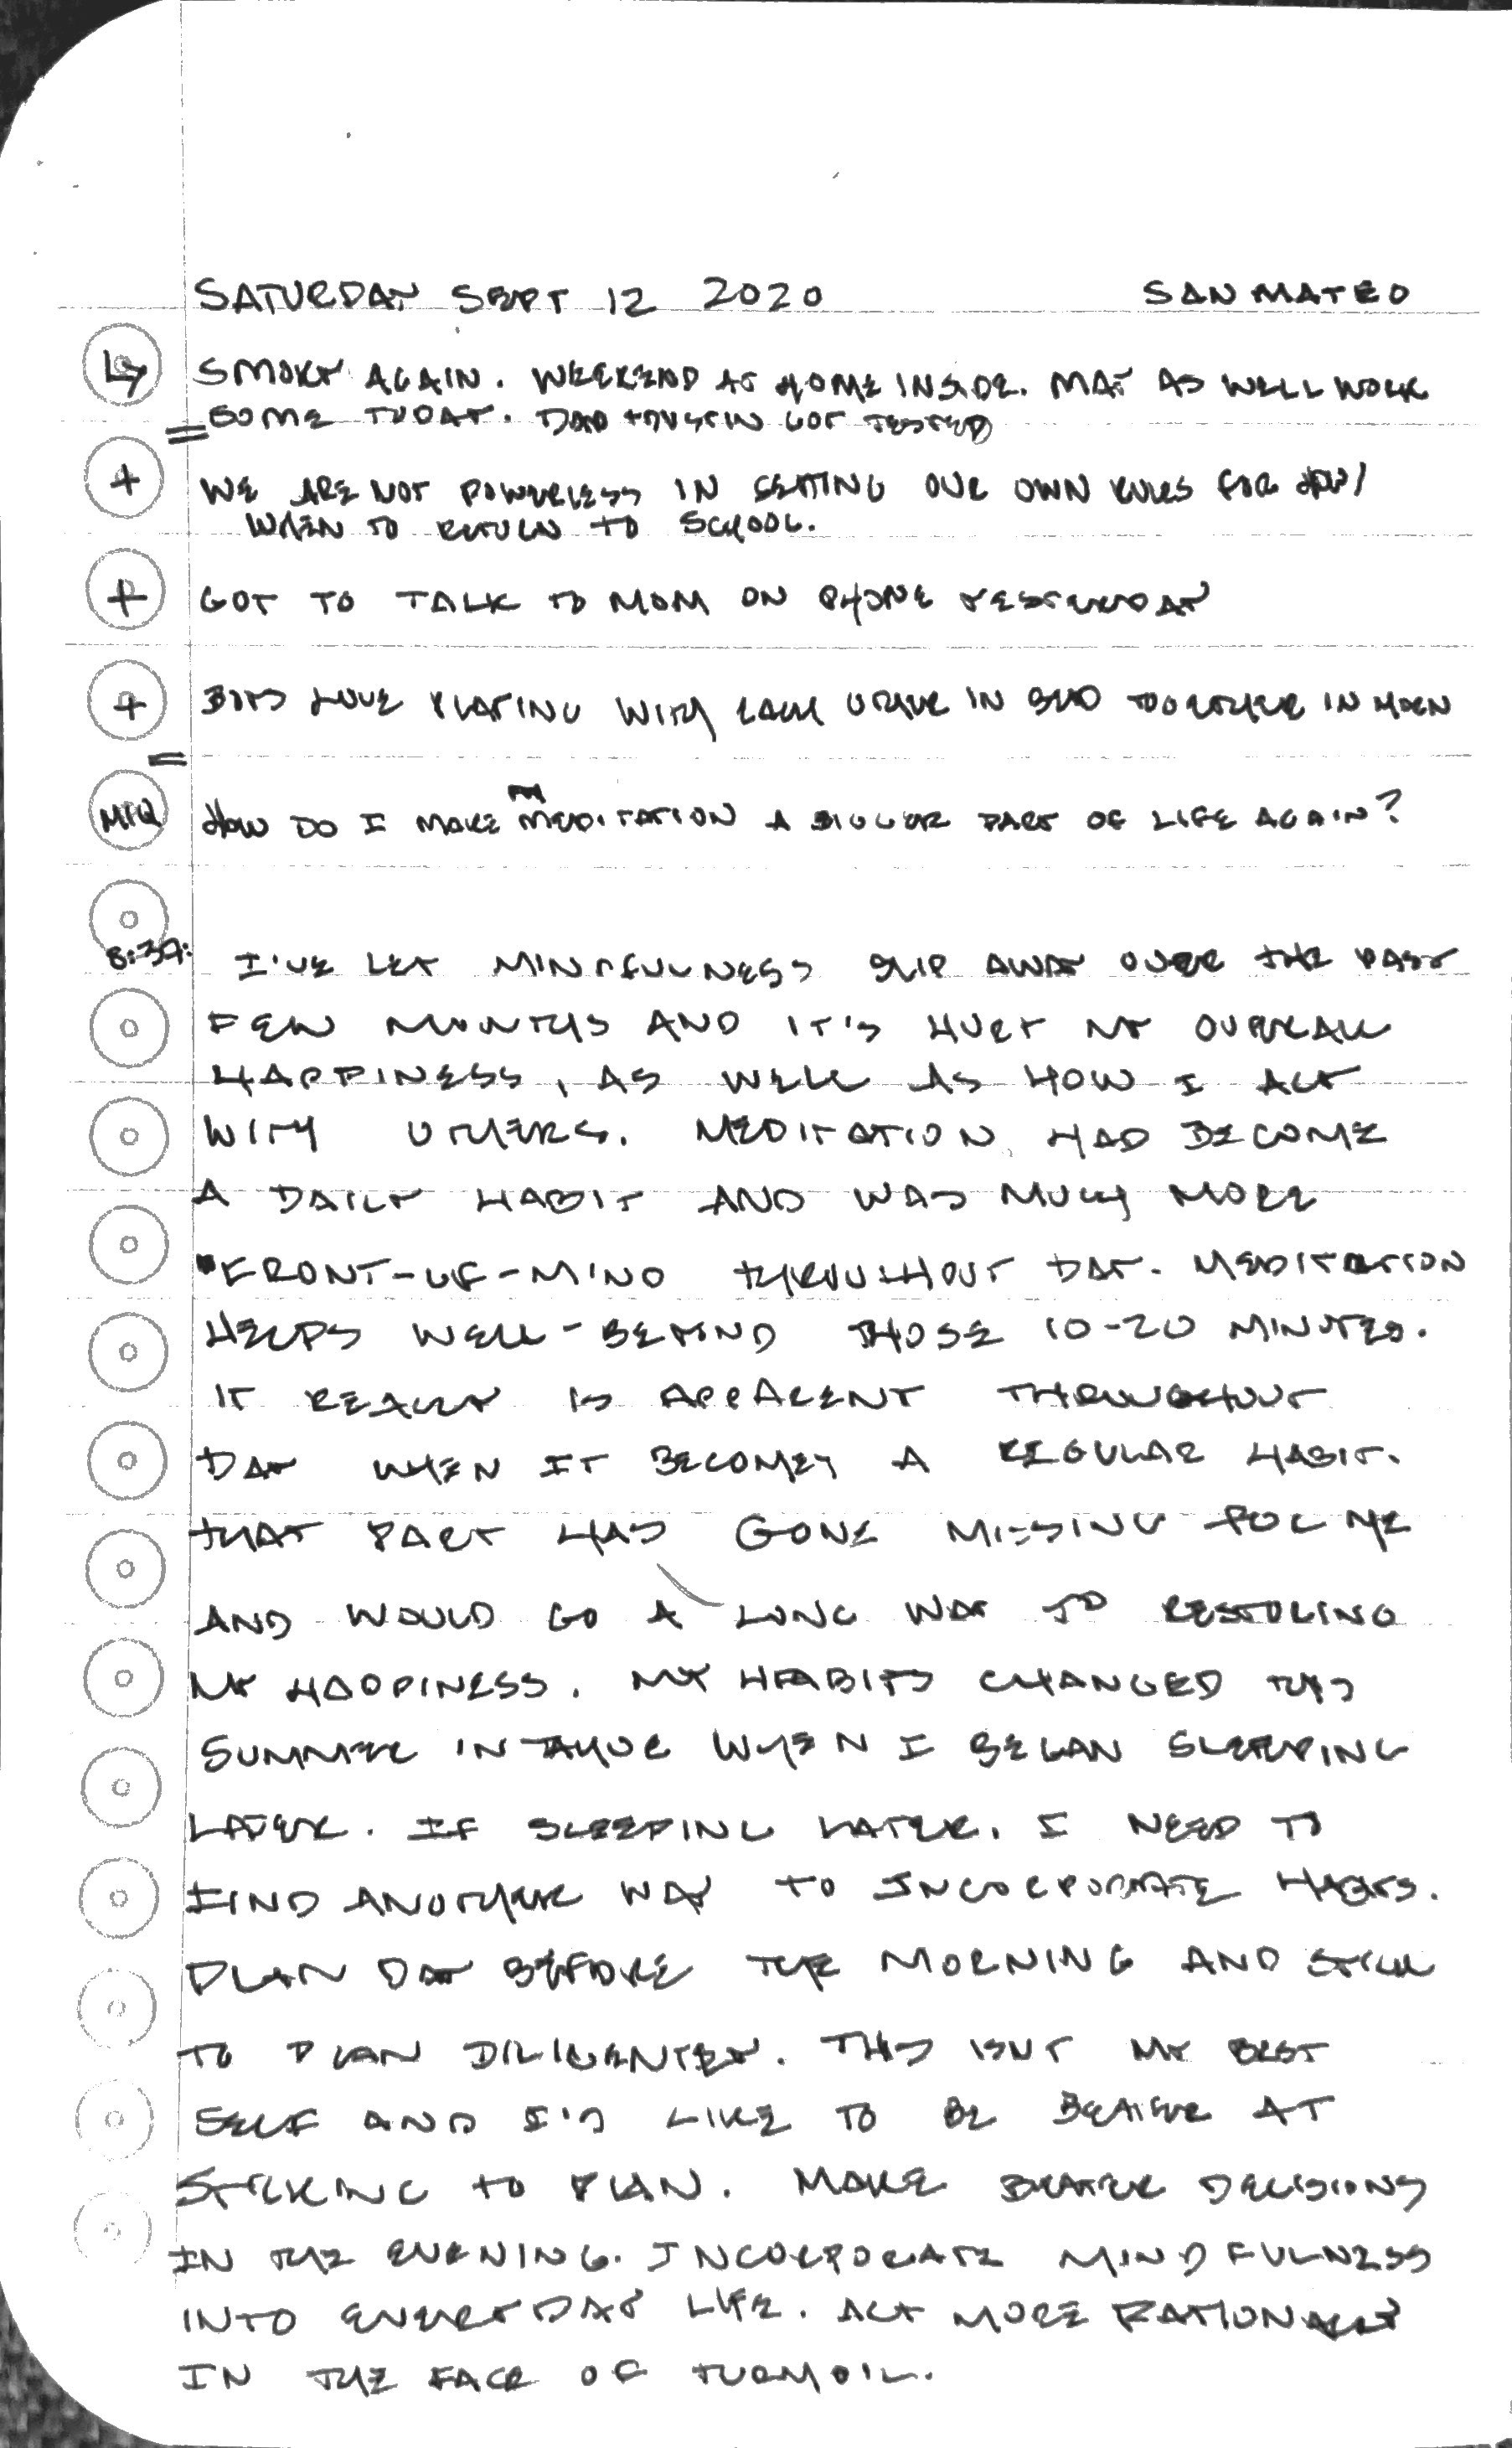 SATURDAY SEPT 12 2020 SAN MATEO
↳ SMOKY AGAIN. WEEKEND AT HOME INSIDE. MAY AS WELL WORK
= SOME TODAY. DAD + GOT TESTED
+ WE ARE NOT POWERLESS IN SETTING OUR OWN RULES FOR HOW/
WHEN TO RETURN TO SCHOOL.
+ GOT TO TALK TO MOM ON PHONE YESTERDAY
+ BOYS LOVE PLAYING WITH EACH OTHER IN BED TOGETHER IN MORN
=
MIQ HOW DO I MAKE MEDITATION A BIGGER PART OF LIFE AGAIN?
8:39: I'VE LET MINDFULNESS SLIP AWAY OVER THE PAST
FEW MONTHS AND IT'S HURT MY OVERALL
HAPPINESS, AS WELL AS HOW I ACT
WITH OTHERS. MEDITATION HAD BECOME
A DAILY HABIT AND WAS MUCH MORE
FRONT-OF-MIND THROUGHOUT DAY. MEDITATION
HELPS WELL-BEYOND THOSE 10-20 MINUTES.
IT REALLY IS APPARENT THROUGHOUT
DAY WHEN IT BECOMES A REGULAR HABIT.
THAT PART HAS GONE MISSING FOR ME
AND WOULD GO A LONG WAY TO RESTORING
MY HAPPINESS. MY HABITS CHANGED THIS
SUMMER IN TAHOE WHEN I BEGAN SLEEPING
LATER. IF SLEEPING LATER, I NEED TO
FIND ANOTHER WAY TO INCORPORATE HABITS.
PLAN DAY BEFORE THE MORNING AND STICK
TO PLAN DILIGENTLY. THIS ISN'T MY BEST
SELF AND I'D LIKE TO BE BETTER AT
STICKING TO PLAN. MAKE BETTER DECISIONS
IN THE EVENING. INCORPORATE MINDFULNESS
INTO EVERYDAY LIFE. ACT MORE RATIONALLY
IN THE FACE OF TURMOIL.